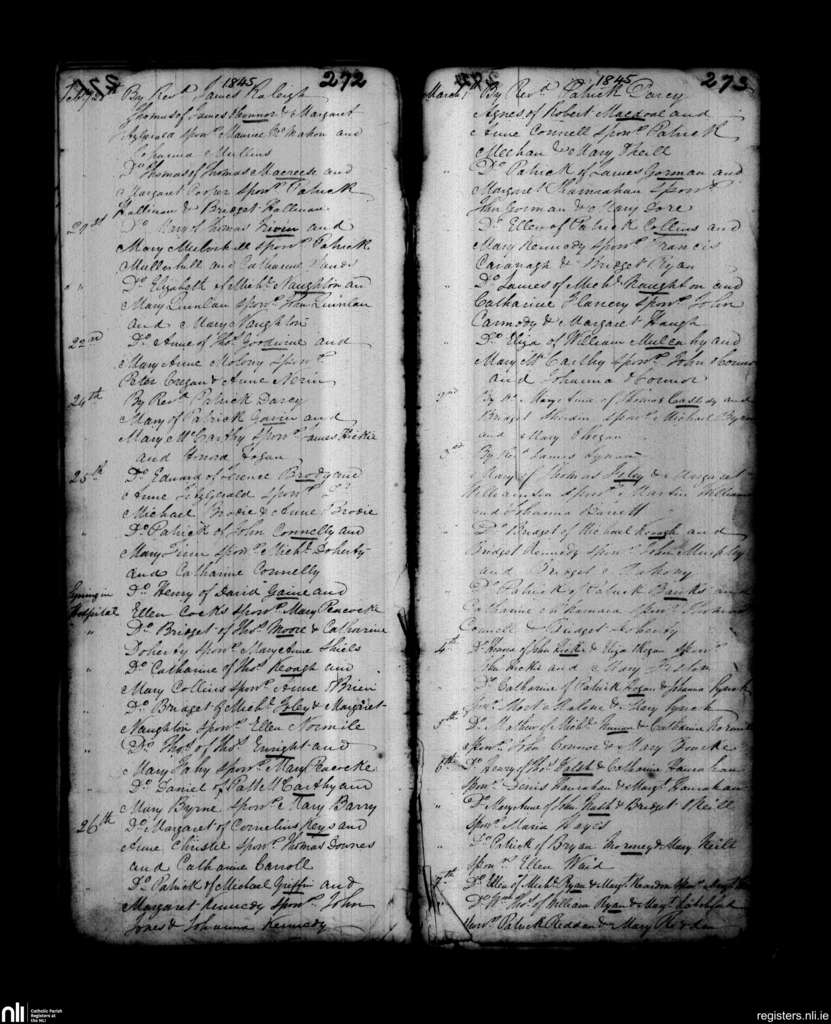 1845 272
By Revd. James Raleigh
Thomas of James Connor & Margaret
Fitzgerald Sponrs. Maurice McMahon and
Johanna Mullins
Do. Thomas of Thomas Macreese and
Margaret Cooper Sponrs. Patrick
Hallinan & Bridget Hallinan
Do. Mary of Thomas and
Mary Sponrs. Patrick
Mulderhill and Catharine Sands
" " Do. Elizabeth of Michl. Naughton an
Mary Quinlan Sponrs. John Quinlan
and Mary Naughton
22nd Do. Anne of Thos. Goodwine and
Mary Anne Molony Sponrs.
Peter Cregan & Anne Nerin
24th By Revd. Patrick Darcy
Mary of Patrick Gavin and
Mary McCarthy Sponrs. James Hickie
and Honora Hogan
25th Do. Edward of Terence Brody and
Anne Fitzgerald Sponrs.
Michael Brodie & Anne Brodie
" Do. Patrick of John Connelly and
Mary Finn Sponrs. Michl. Doherty
and Catharine Connelly
Lying in Do. Henry of David Game and
Hospital Ellen Cocks Sponr. Mary Peacocke
" Do. Bridget of Thos. Moore & Catharine
Doherty Sponr. Mary Anne Shiels
" Do. Catharine of Thos. Keough and
Mary Collins Sponr. Anne OBrien
" Do. Bridget of Michl. Foley & Margaret
Naughton Sponr. Ellen Normile
" Do. Thos. of Thos. Enright and
Mary Fahy Sponr. Mary Peacocke
" Do. Daniel of Patt McCarthy and
Mary Byrne Sponr. Mary Barry
26th Do. Margaret of Cornelius Keys and
Anne Christie Sponrs. Thomas Downes
and Catharine Carroll
" Do. Patrick of Michael Griffin and
Margaret Kennedy Sponrs. John
Jones & Johanna Kennedy
1845 273
March 1st By Revd. Patrick Darcy
Agnes of Robert Macdonal and
Anne Connell Sponrs. Patrick
Meehan & Mary
" Do. Patrick of James Gorman and
Margaret Shanahan Sponrs.
John Gorman & Mary Gore
" Do. Ellen of Patrick Collins and
Mary Kennedy Sponrs. Francis
Cavanagh & Bridget Ryan
" Do. James of Michl. Naughton and
Catharine Clancy Sponrs. John
Carmody & Margaret Haugh
" Do. Eliza of William Mulcahy and
Mary McCarthy Sponrs. John Connor
and Johanna Connor
2nd By Do. Mary Anne of Thomas Cassidy and
Bridget Sheedan Sponrs. Michael Byrne
and Mary Hogan
3rd By Revd. James Synan
Mary of Thomas Foley & Margaret
Williamson Sponrs. Martin William
and Johanna Barrett
" Do. Bridget of Michael Keough and
Bridget Kennedy Sponrs. John Murphy
and Bridget Mahony
" Do. Patrick of Patrick Banks and
Catharine McNamara Sponrs. Thomas
Connell & Bridget Doherty
4th Do. Honora of John Hickie & Eliza Hogan Sponrs.
John Hickie and Mary
" Do. Catharine of Patrick Hogan & Johanna Lynch
Sponrs. Malone & Mary Lynch
5th Do. Mathew of Michl. & Catharine Normile
Sponrs. John Connor & Mary Bourke
6th Do. Henry of Thos. Walsh & Catharine Hanrahan
Sponrs. Denis Hanrahan & Margt. Hanrahan
" Do. Mary Anne of John Nash & Bridget ONeill
Sponr. Maria Hayes
" Do. Patrick of Bryan & Mary Neill
Sponr. Ellen Waid
7th Do. Ellen of Michl. Ryan & Mary Reardon Sponr.
" Do. Wm. Thos. of William Ryan & Margt.
Sponrs. Patrick Reddan & Mary Reddan
nli Catholic Parish
Registers at
the NLI
registers.nli.ie